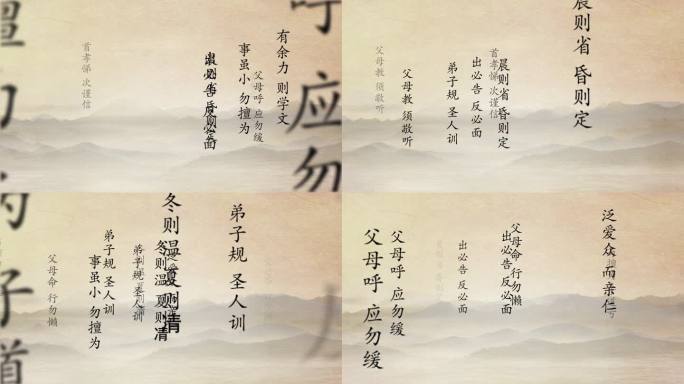 呼 应勿
有余力 则学文
父母呼 应勿缓
事虽小 勿擅为
出必告 反必面
首孝悌 次谨信
晨则省 昏则定
晨则省 昏则定
首孝悌 次谨信
出必告 反必面
弟子规 圣人训
父母教 须敬听
父母教 须敬听
弟子规 圣人训
冬则温 夏则凊
冬则温 夏则凊
弟子规 圣人训
弟子规 圣人训
事虽小 勿擅为
父母命 行勿懒
子道
泛爱众 而亲仁
父母命 行勿懒
出必告 反必面
出必告 反必面
父母呼 应勿缓
父母呼 应勿缓